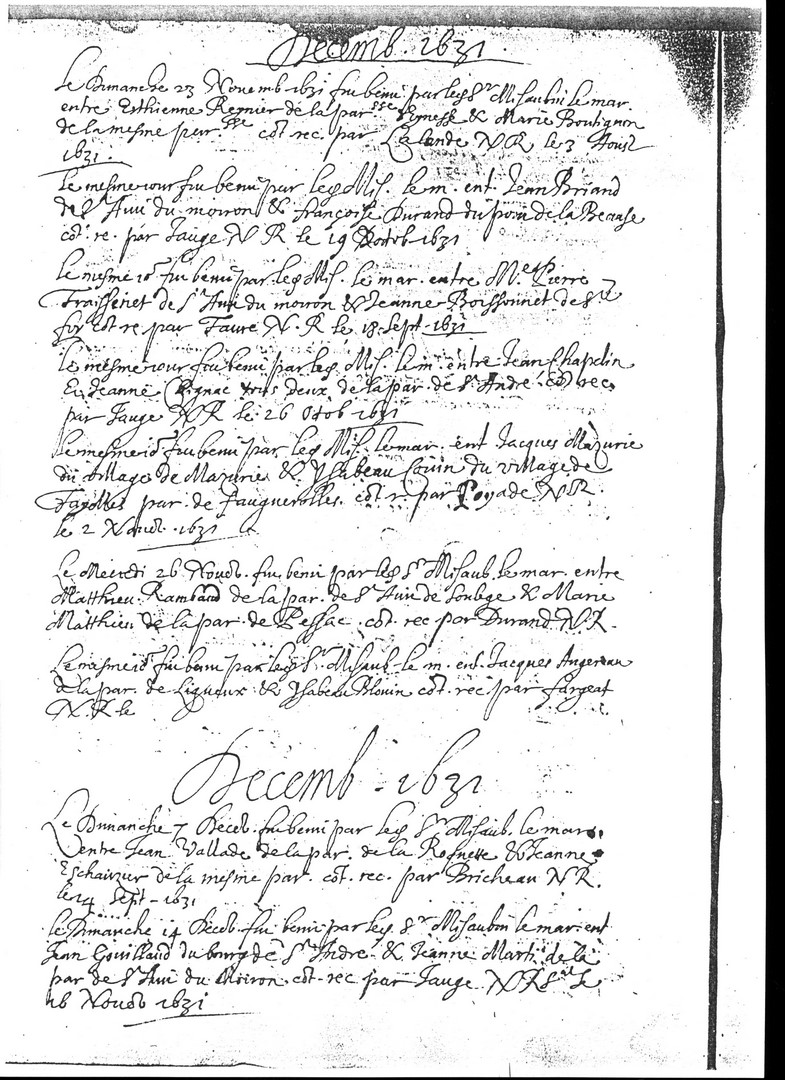 Decemb. 1631.
Le Dimanche 23 Novemb 1631 fut beni par led Sr Misaubin le mar.
entre Esthienne Regnier de la parsse Eymesse & Marie Boutignon
de la mesme parsse cot. rec. par Lalande N R le 3 Aoust
1631.
Le mesme iour fut beni par led Mis. le m. ent. Jean Briand
de St Avit du moiron & françoise Durand du de la Beause
cot. re. par Jauge N R le 19 Octob 1631
Le mesme io fut beni par led Mis. le mar. entre Me Pierre
Fraissenet de St Avit du moiron & Jeanne Boissonnet de Ste
foy cot re par Faure N. R le 18 Sept 1631
Le mesme iour fut beni par led Mis. le m. entre Jean Chapelin
Et Jeanne tous deux de la par. de St André. cot rec.
par Jauge N R le 26 Octob 1631
Le mesme io fut beni par led Mis. le mar. ent Jacques Mazurie
du village de Mazurie & Ysabeau Couin du village de
Fayolles par. de fauguerolles. cot. r. par Poyade N R.
le 2 Novob. 1631
Le Mecredi 26 Novob. fut beni par led Sr Misaub. le mar. entre
Matthieu Rambaud de la par. de St Avit de Soulege & Marie
Matthieu de la par. de Pessac. cot. rec par Durand N R.
Le mesme io fut beni par led Sr Misaub. le m. ent. Jacques Angereau
de la par. de Ligueux & Ysabeau Blouin cot. rec. par fargeat
N. R le
Decemb. 1631
Le Dimanche 7 Decob. fut beni par led Sr Misaub. le mar.
entre Jean Vallade de la par. de la Roquette & Jeanne
Eschaizur de la mesme par. cot. rec. par Bricheau N R.
le 14 Sept. 1631
Le Dimanche 14 Decob. fut beni par led. Sr Misaubin le mar. ent
Jean Gouillaud du bourg de St André & Jeanne Marti de la
par de St Avit du Moiron. cot. rec par Jauge N Ral le
16 Novob 1631